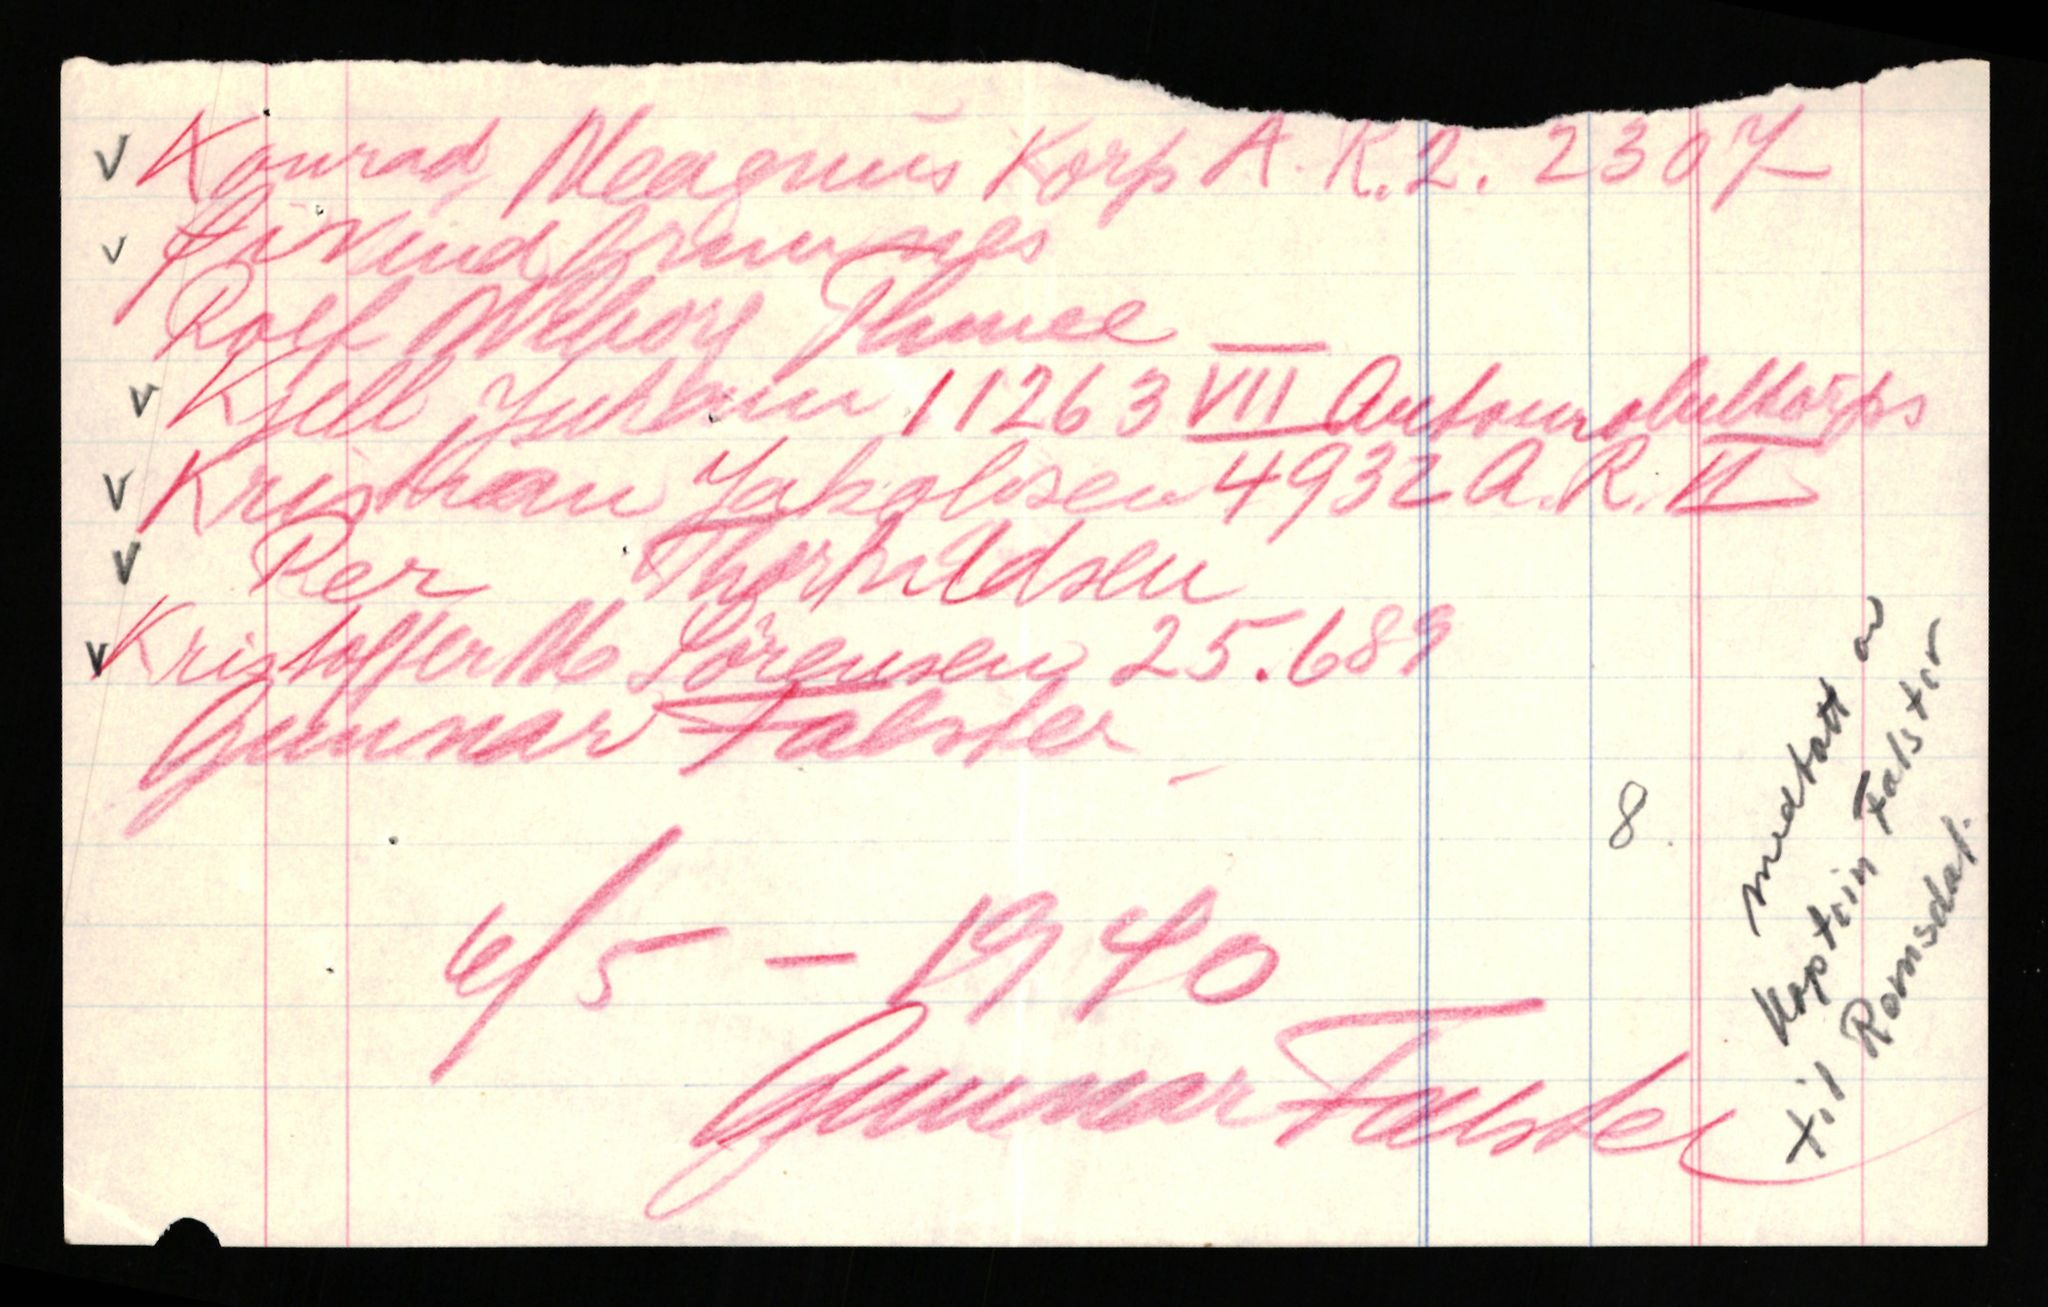 v Konrad Magnus Korp A. R. 2. 2307
v Eivind
Rolf
v Kjell 11263 VII Automobilkorps
v Kristian Jakobsen 4932 A. R. II
v Per Thorvildsen
v Kristoffer M Sörensen 25.689
Gunnar Falster
8.
6/5 - 1940
Gunnar Falster
medtatt av
Kaptein Falster
til Romsdal.